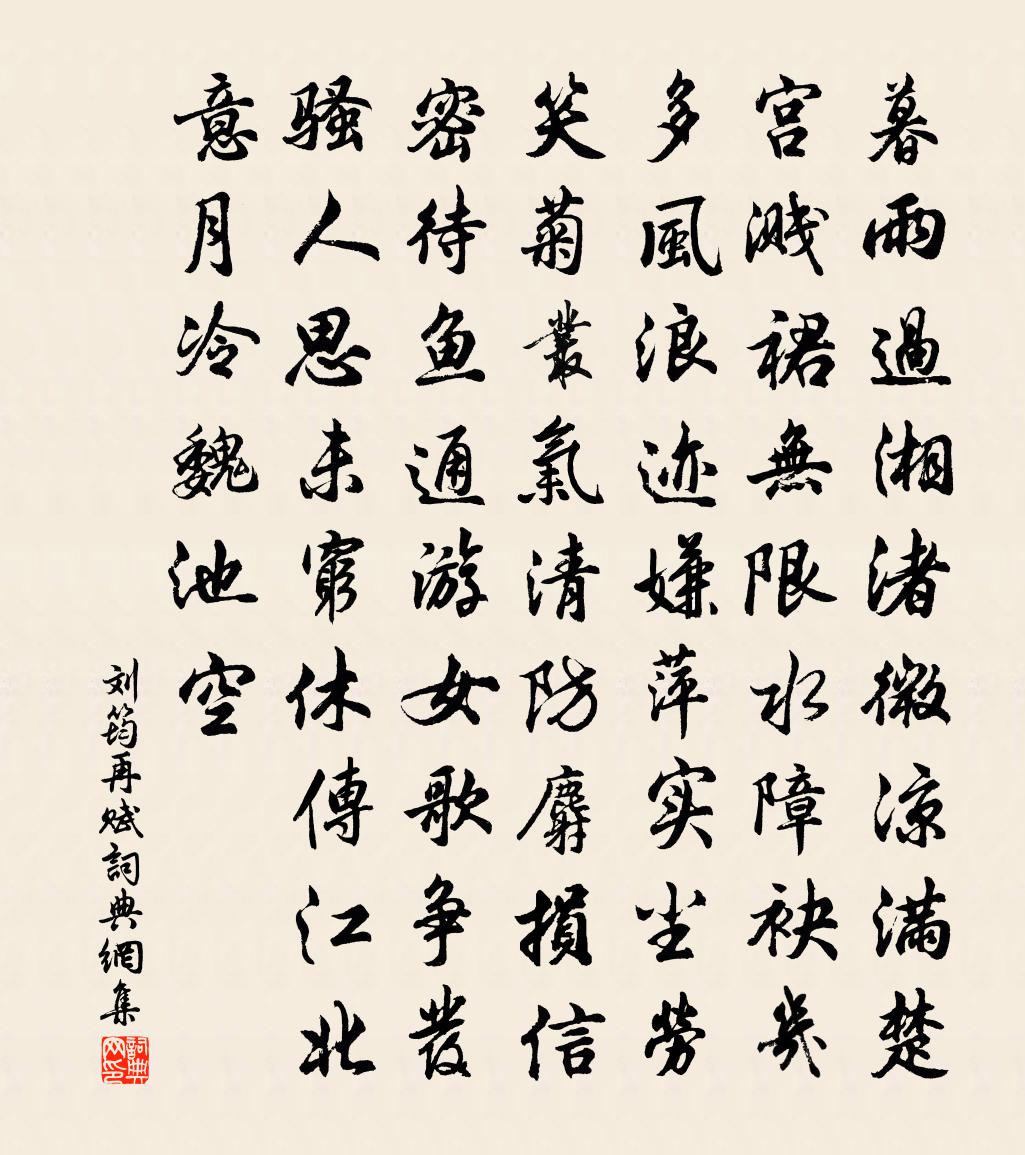 暮雨過湘渚微涼滿楚
宮濺裙無限水障袂幾
多風浪迹嫌萍实尘勞
笑菊叢氣清防麝損信
密待鱼通游女歌争發
骚人思未窮休傳江北
意月冷魏池空
刘筠再赋詞典網集
詞典网印